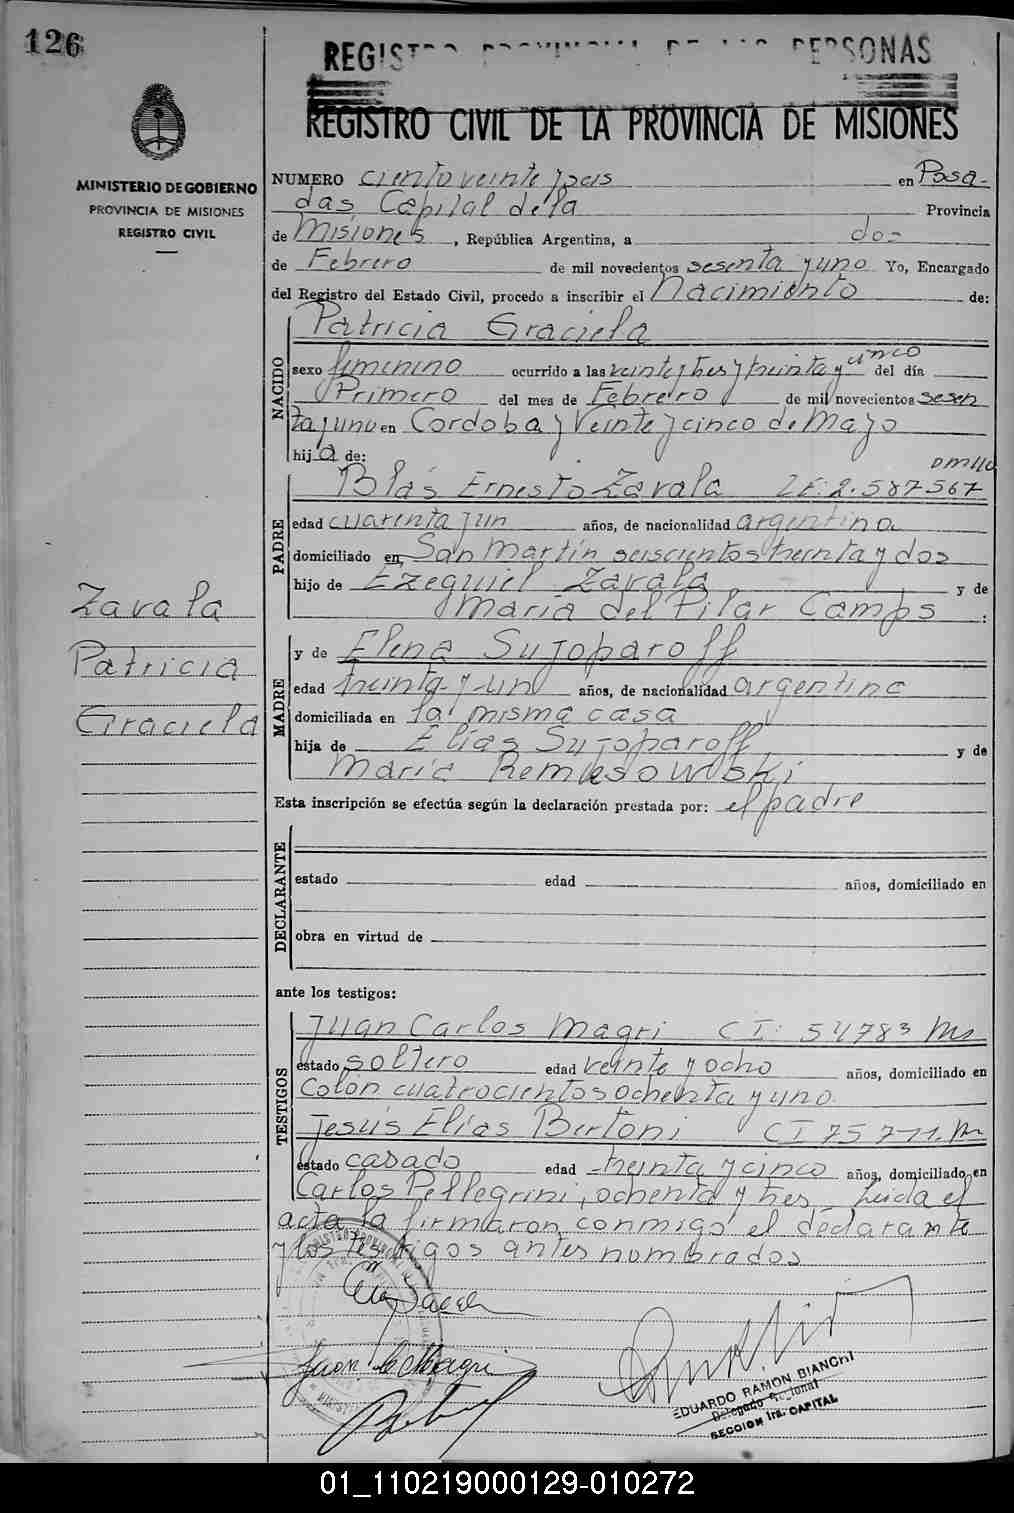 126
REGISTRO PROVINCIAL DE LAS PERSONAS
REGISTRO CIVIL DE LA PROVINCIA DE MISIONES
MINISTERIO DE GOBIERNO
PROVINCIA DE MISIONES
REGISTRO CIVIL
NUMERO ciento veinte y seis en Posa-
das Capital de la Provincia
de Misiones, República Argentina, a dos
de Febrero de mil novecientos sesenta y uno Yo, Encargado
del Registro del Estado Civil, procedo a inscribir el Nacimiento de:
NACIDO
Patricia Graciela
sexo femenino ocurrido a las veinte y tres y treinta y cinco del día
Primero del mes de Febrero de mil novecientos sesen
ta y uno en Cordoba y Veinte y cinco de Mayo
hija de:
PADRE
Blás Ernesto Zavala LE: 2.587567
edad cuarenta y un años, de nacionalidad argentina
domiciliado en San Martín seiscientos treinta y dos
hijo de Ezequiel Zavala y de
María del Pilar Camps :
Zavala
Patricia
Graciela
MADRE
y de Elena Sujoparoff
edad treinta y un años, de nacionalidad argentina
domiciliada en la misma casa
hija de Elías Sujoparoff y de
María Remesowiski
Esta inscripción se efectúa según la declaración prestada por: el padre
DECLARANTE
estado edad años, domiciliado en
obra en virtud de
ante los testigos:
TESTIGOS
Juan Carlos Magri CI: 54783 Ms
estado soltero edad veinte y ocho años, domiciliado en
Colon cuatrocientos ochenta y uno.
Jesús Elías Bertoni CI 75711. M
estado casado edad treinta y cinco años, domiciliado en
Carlos Pellegrini, ochenta y tres Leida el
acta la firmaron conmigo el declarante
y los testigos antes nombrados
Juan C Magri
EDUARDO RAMON BIANCHI
Delegado Regional
SECCION 1ra. CAPITAL
01_110219000129-010272